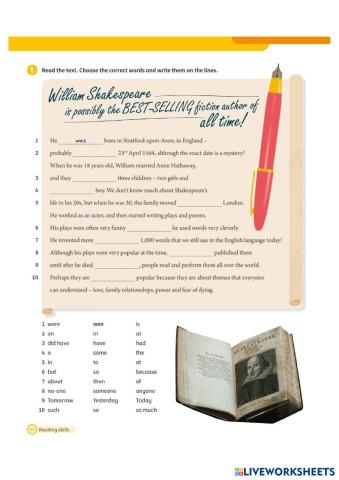 1 Read the text. Choose the correct words and write them on the lines.
William Shakespeare
is possibly the BEST-SELLING fiction author of
all time!
1 He was born in Stratford-upon-Avon, in England –
2 probably 23rd April 1564, although the exact date is a mystery!
When he was 18 years old, William married Anne Hathaway,
3 and they three children – two girls and
4 boy. We don't know much about Shakespeare's
5 life in his 20s, but when he was 30, the family moved London.
He worked as an actor, and then started writing plays and poems.
6 His plays were often very funny he used words very cleverly.
7 He invented more 1,000 words that we still use in the English language today!
8 Although his plays were very popular at the time, published them
9 until after he died. , people read and perform them all over the world.
10 Perhaps they are popular because they are about themes that everyone
can understand – love, family relationships, power and fear of dying.
1 were was is
2 on in at
3 did have have had
4 a some the
5 in to at
6 but so because
7 about than of
8 no-one someone anyone
9 Tomorrow Yesterday Today
10 such so so much
Reading skills
LIVEWORKSHEETS